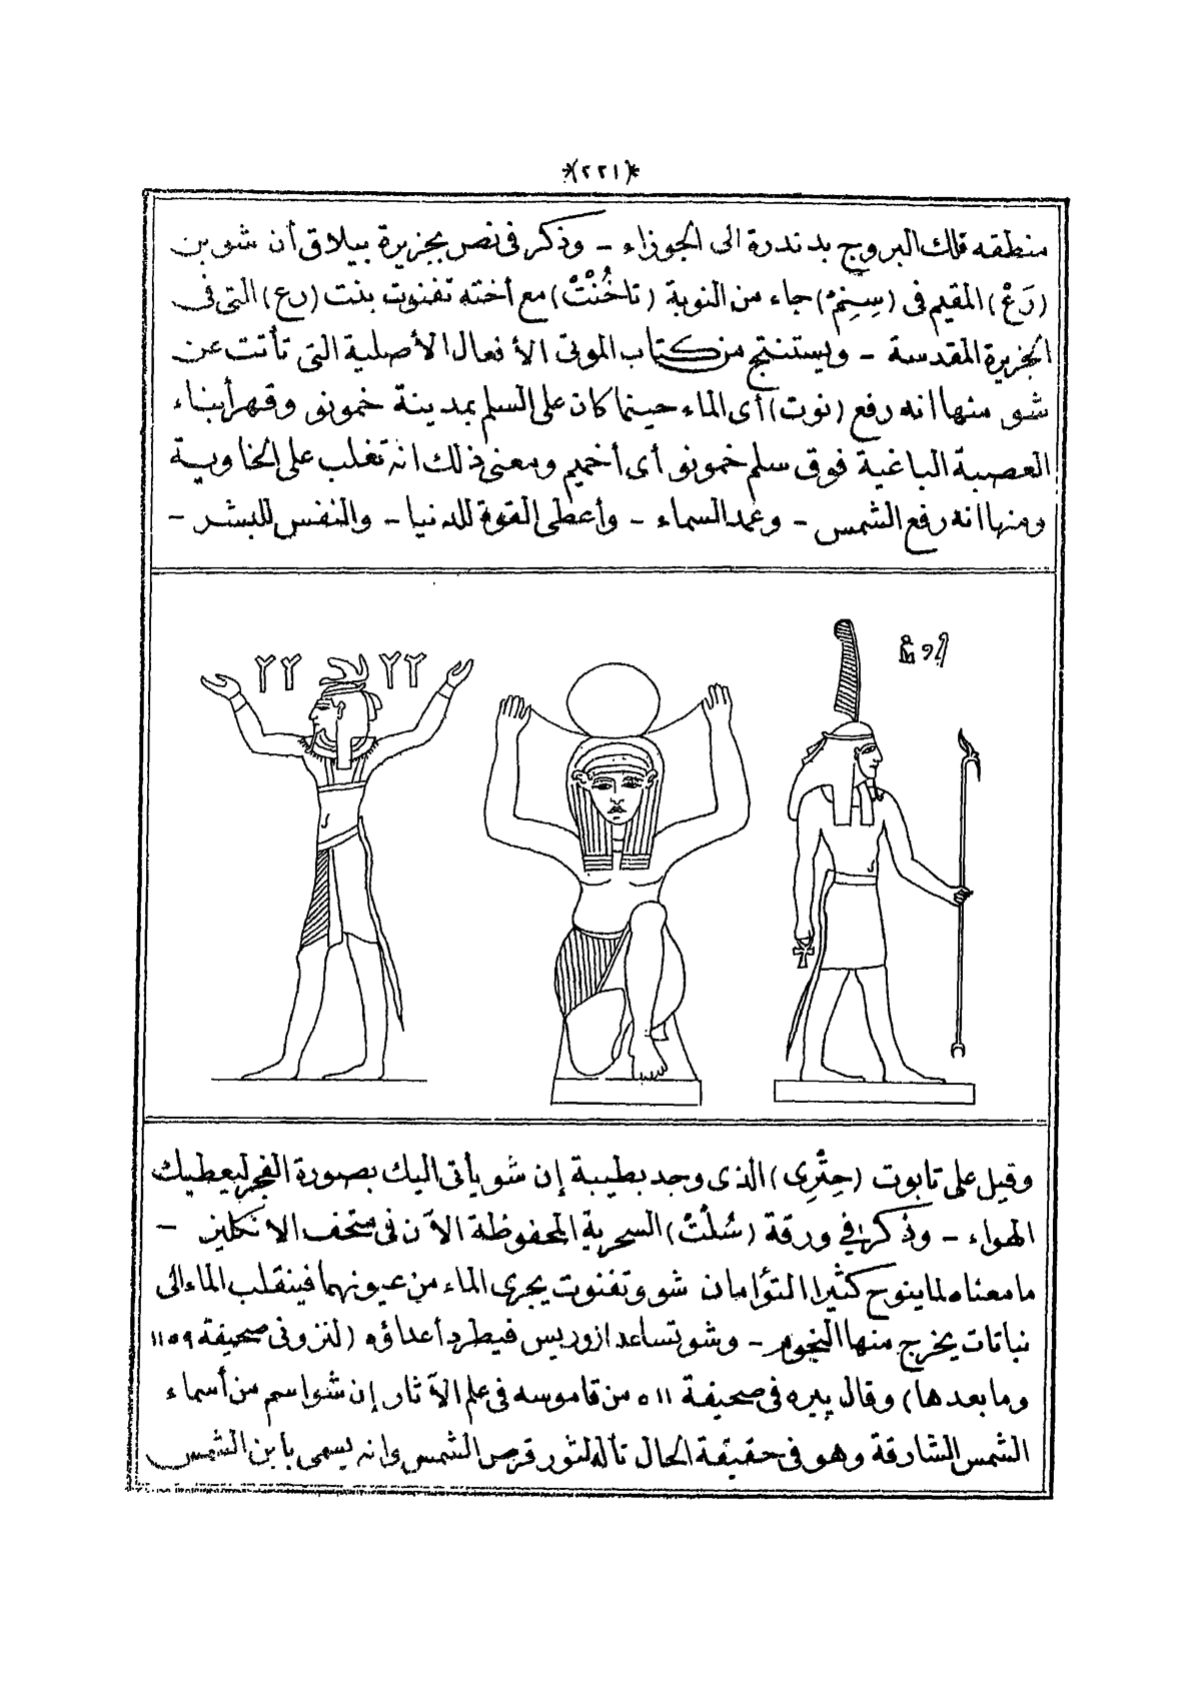 *(٢٢١)*
منطقه فلك البروج بدندرة الى الجوزاء – وذكر فى نص بجزيرة بيلاق أن شو بن
(رَعْ) المقيم فى (سِنِمْ) جاء من النوبة (تاخُنْتْ) مع أخته تفنوت بنت (رع) التى فى
الجزيرة المقدسة – ويستنتج من كتاب الموتى الأفعال الأصلية التى تأتت عن
شو منها انه رفع (نوت) أى الماء حينما كان على السلم بمدينة خمونو وقهر أبناء
العصبة الباغية فوق سلم خمونو أى أخميم ومعنى ذلك انه تغلب على الخاوية
ومنها انه رفع الشمس – وعمد السماء – وأعطى القوة للدنيا – والنفس للبشر –
وقيل على تابوت (حِتْرِى) الذى وجد بطيبة إن شو يأتى اليك بصورة الفجر ليعطيك
الهواء – وذكر فى ورقة (سُلْتْ) السحرية المحفوظة الآن فى متحف الانكليز –
ما معناه لما ينوح كثيرا التؤامان شو وتفنوت يجرى الماء من عيونهما فينقلب الماء الى
نباتات يخرج منها البخور – وشو تساعد ازوريس فيطرد أعداؤه (لنزونى صحيفة ١١٥٩
وما بعدها) وقال پيره فى صحيفة ٥١١ من قاموسه فى علم الآثار إن شو اسم من أسماء
الشمس الشارقة وهو فى حقيقة الحال تأله لنور قرص الشمس وانه يسمى بابن الشمس